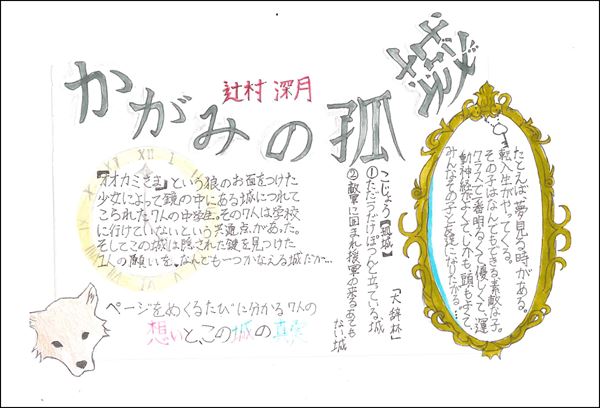 かがみの孤城
辻村 深月
『オオカミさま』という狼のお面をつけた
少女によって鏡の中にある城につれて
こられた7人の中学生。その7人は学校
に行けていないという共通点があった。
そしてこの城は隠された鍵を見つけた
1人の願いを。なんでも一つかなえる城だが…
ページをめくるたびに分かる7人の
想いと、この城の真実
こじょう【孤城】
①ただ一つだけぽつんと立っている城
②敵軍に囲まれ援軍の来るあても
ない城
「大辞林」
たとえば夢見る時がある。
転入生がやってくる。
その子はなんでもできる、素敵な子。
クラスで一番明るくて、優しくて、運
動神経がよくて、しかも、頭もよくて、
みんなその子と友達になりたがる…
XII
I